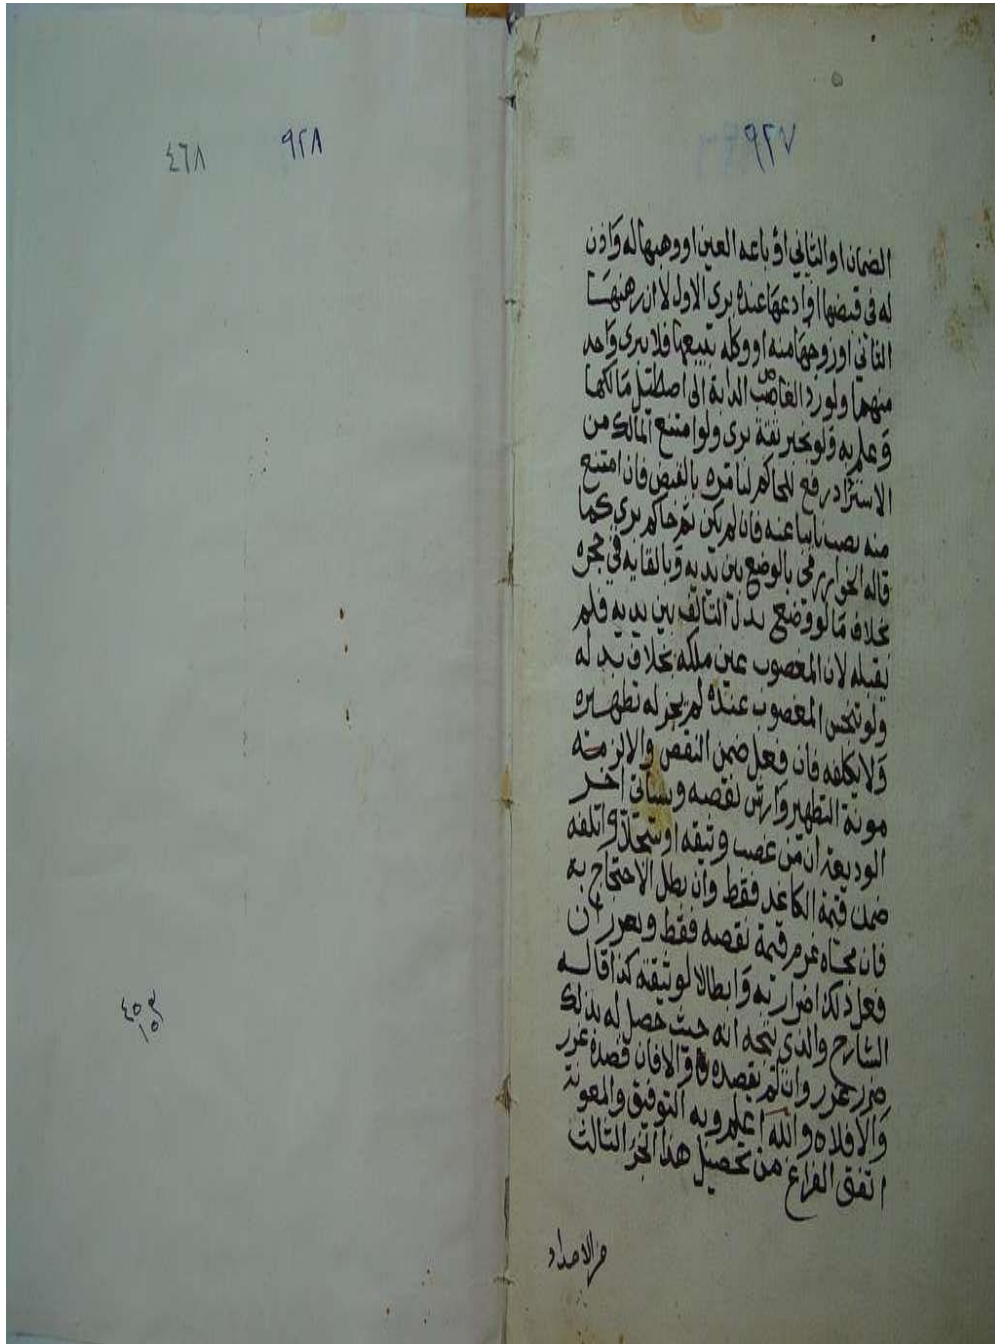 ٩٢٧
الضمان او الثاني او باعه العين او وهبها له واذن
له فى قبضها او اودعها عنده برى الاول لا ان رهنها
الثاني او زوجها منه او وكله ببيعها فلا يبرى واحد
منهما ولو رد الغاصب الدابة الى اصطبل مالكها
وعلم به ولو بخبر ثقة برى ولو امتنع المالك من
الاسترداد رفع للحاكم ليامره بالقبض فان امتنع
منه نصب نايبا عنه فان لم يكن ثم حاكم برى كما
قاله الخوارزمى بالوضع بين يديه وبالقايه في حجره
بخلاف ما لو وضع بدل التالف بين يديه فلم
يقبله لان المغصوب عين ملكه بخلاف بدله
ولو تنجس المغصوب عنده لم يجز له تطهيره
ولا يكلفه فان فعل ضمن النقص والا لزمته
مونة التطهير وارش نقصه وسياتى اخر
الوديعة ان من غصب وثيقه او سجلا واتلفه
ضمن قيمة الكاغد فقط وان بطل الاحتجاج به
فان محاه غرم قيمة نقصه فقط ويعزر ان
فعل ذلك اضرارا به وابطالا لوثيقه كذا قاله
الشارح والذي يتجه انه حيث حصل له بذلك
ضرر عزر وان لم يقصده والا فان قصده عزر
والا فلا والله اعلم وبه التوفيق والمعونة
اتفق الفراغ من تحصيل هذا الجزء الثالث
من الامداد
٩٢٨
٤٦٨